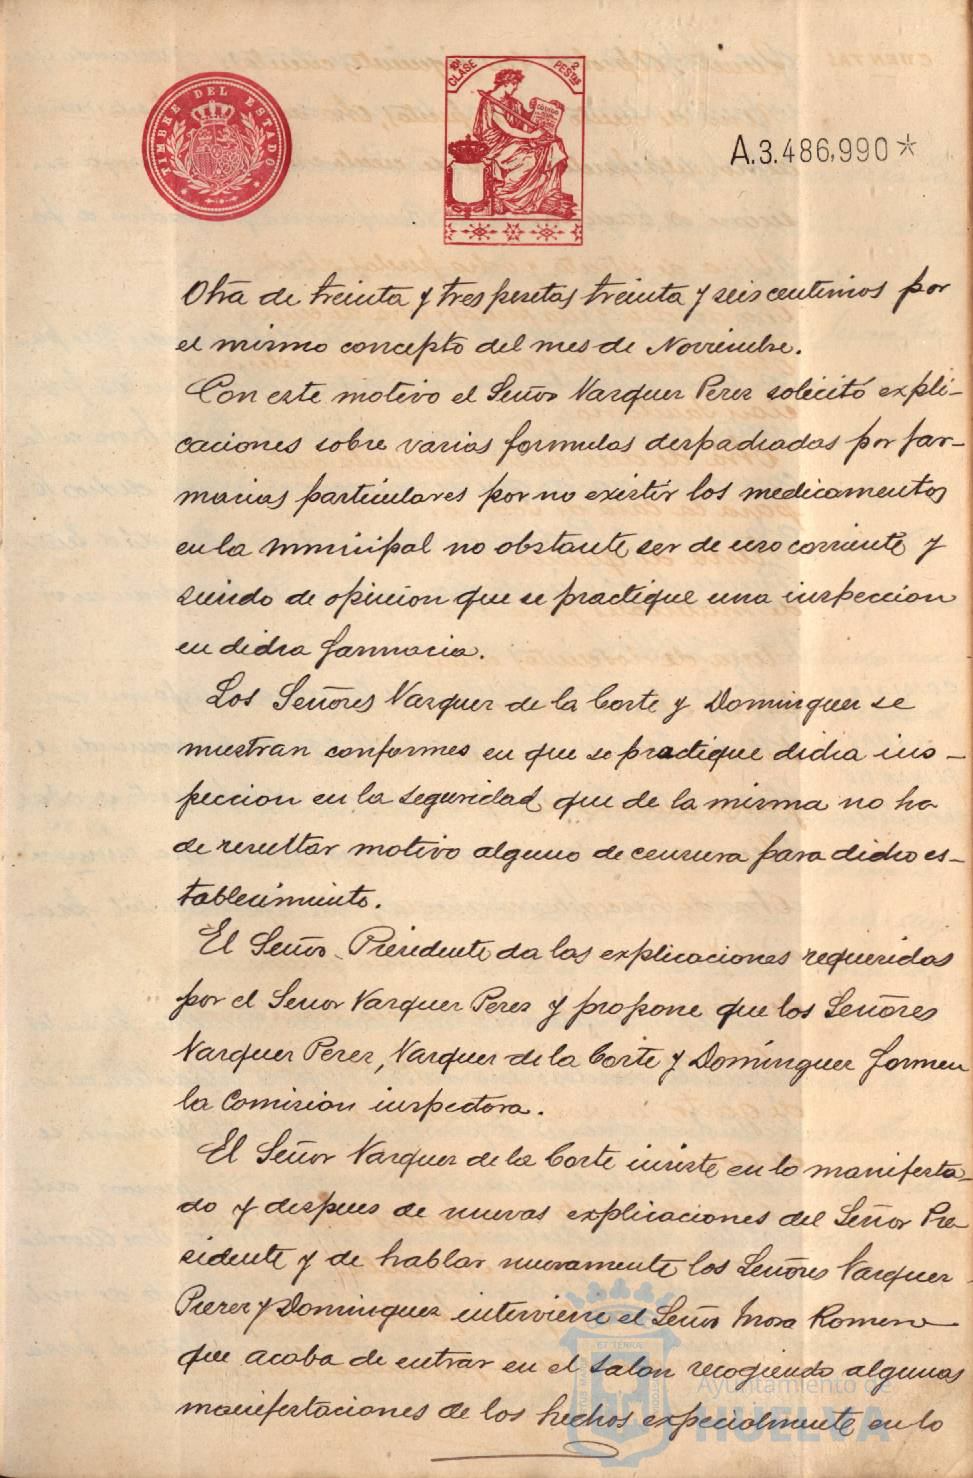 TIMBRE DEL ESTADO
10ª CLASE 2 PESTAS
A.3.486,990*
Otra de treinta y tres pesetas treinta y seis centimos por
el mismo concepto del mes de Noviembre.
Con este motivo el Señor Vazquez Perez solicitó expli-
caciones sobre varias formulas despachadas por far-
macias particulares por no existir los medicamentos
en la municipal no obstante ser de uso corriente y
siendo de opinion que se practique una inspeccion
en dicha farmacia.
Los Señores Vazquez de la Corte y Dominguez se
muestran conformes en que se practique dicha ins-
peccion en la seguridad que de la misma no ha
de resultar motivo alguno de censura para dicho es-
tablecimiento.
El Señor Presidente da las explicaciones requeridas
por el Señor Vazquez Perez y propone que los Señores
Vazquez Perez, Vazquez de la Corte y Domínguez formen
la Comision inspectora.
El Señor Vazquez de la Corte insiste en lo manifesta-
do y despues de nuevas explicaciones del Señor Pre-
sidente y de hablar nuevamente los Señores Vazquez
Perez y Dominguez interviene el Señor Mora Romero
que acaba de entrar en el salon recogiendo algunas
manifestaciones de los hechos especialmente en lo
Ayuntamiento de
HUELVA